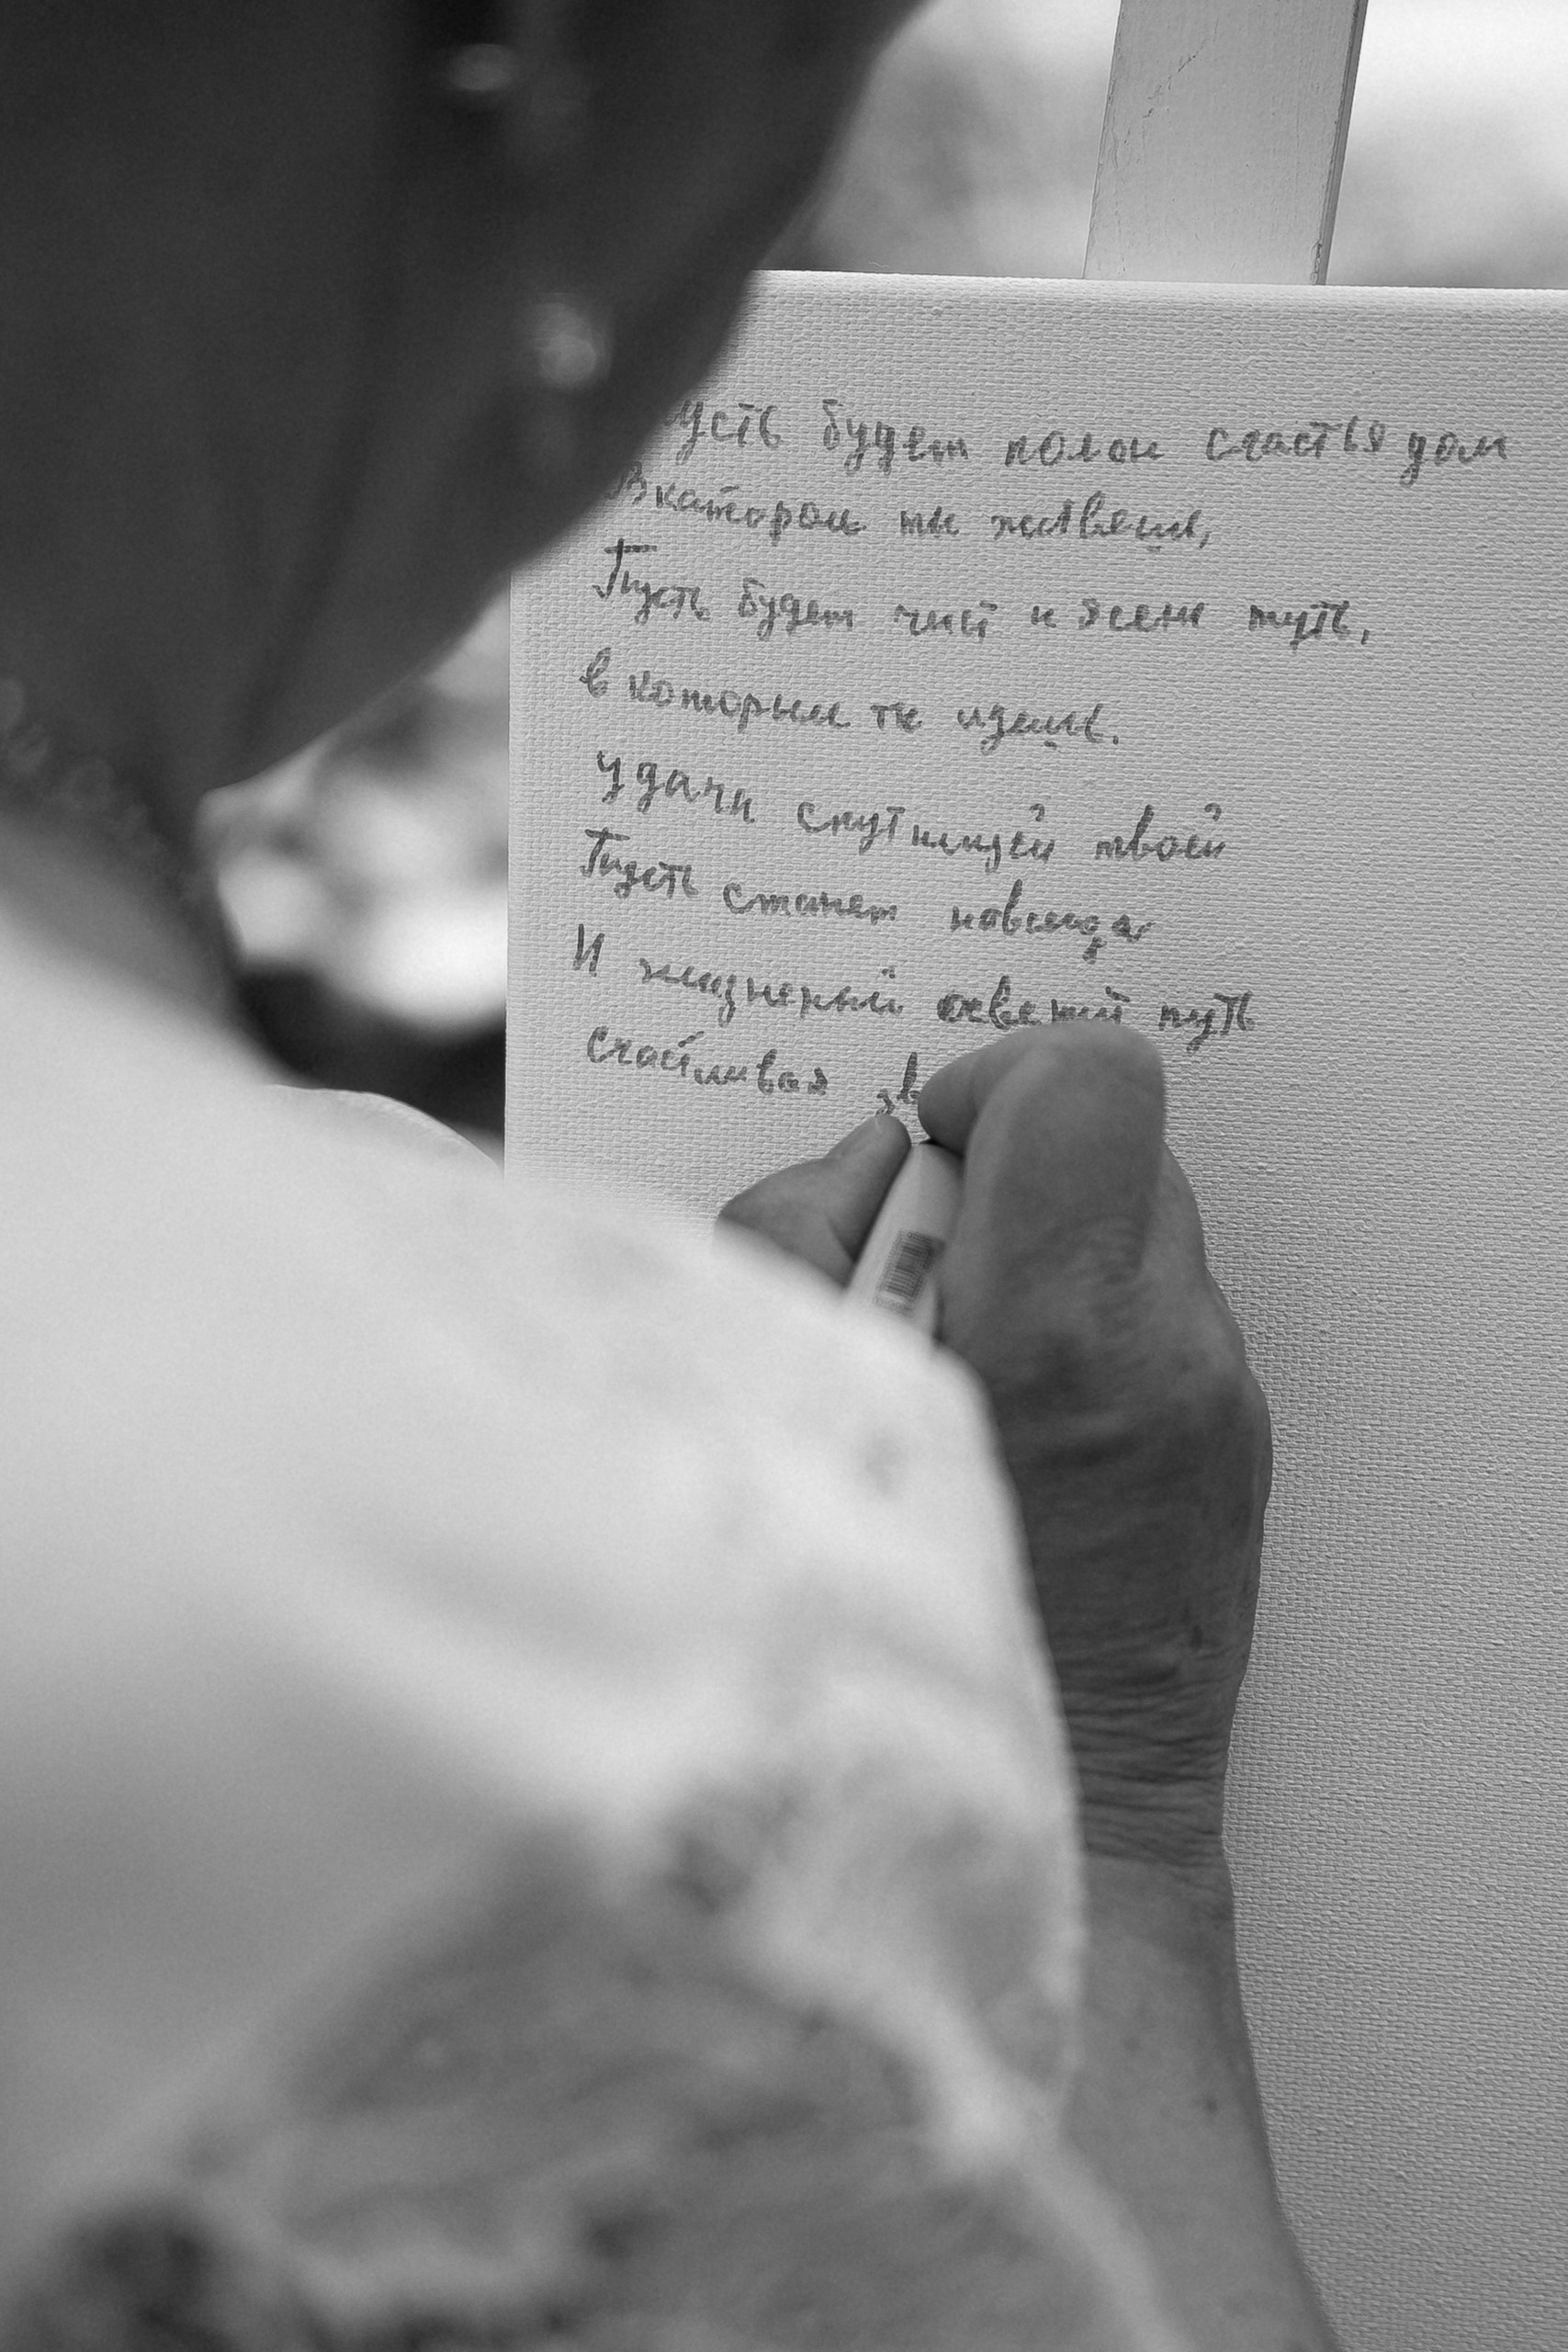 усть будет полон счастья дом
В катором ты живёшь,
Пусть будет чист и ясен путь,
в которым ты идёшь.
удачи спутницей твоей
Пусть станет навсегда
И жизненый осветит путь
счастливая зв